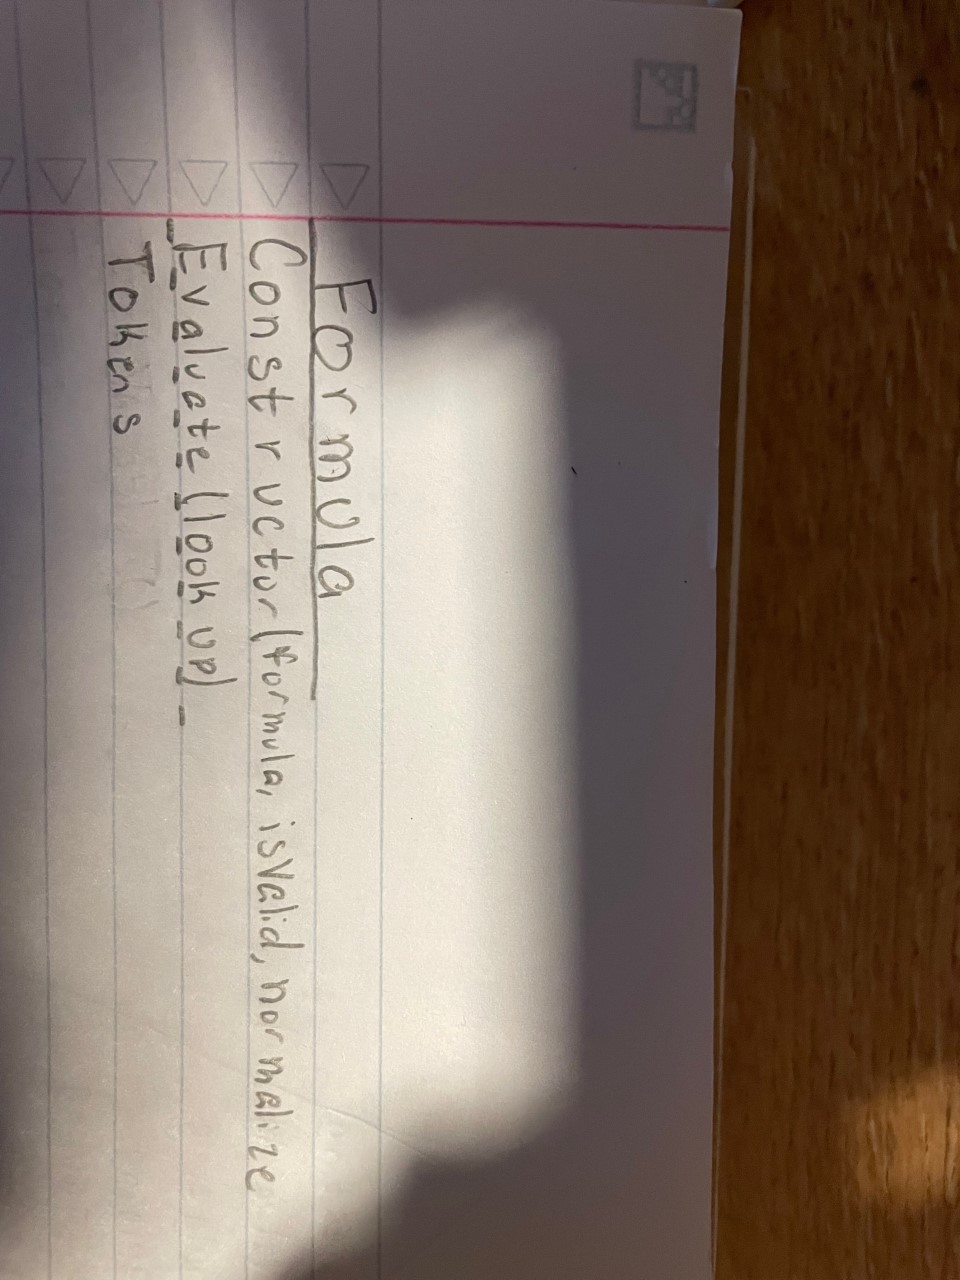 Formula
Constructor(formula, isValid, normalize
Evaluate(lookup)
Tokens